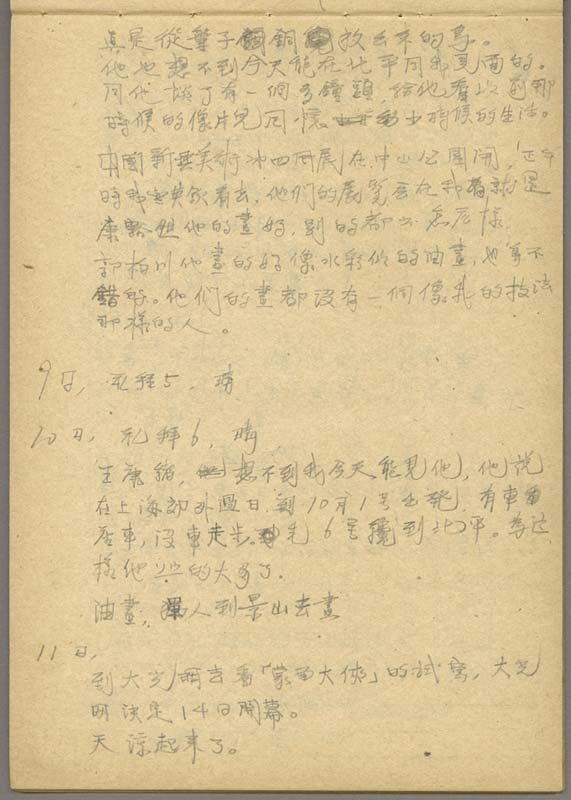 真是從葉子 銅 放出來的鳥。
他也想不到今天能在北平同我見面的。
同他談了有一個多鐘頭,給他看以前那
時候的像片兒回懷 時候的生活。
中國新興美術 四回展在中山公園開,正午
時 看去。他們的展覽會在我看就是
他的畫好,別的都不怎麼樣,
郭柏川他畫的好像水彩似的油畫,也算不
錯的。他們的畫都沒有一個像我的技法
那樣的人。
9日,礼拜5,晴
10日,礼拜6,晴
王康緒, 想不到我今天能見他,他說
在上海郊外過日,到10月1号出発,有車
車,沒車走步。 先6号 到北平。
樣他 的大多了。
油畫; 人到景山去畫
11日,
到大光明去看「蒙面大俠」的試寫,大光
明決定14日開幕。
天涼起來了。